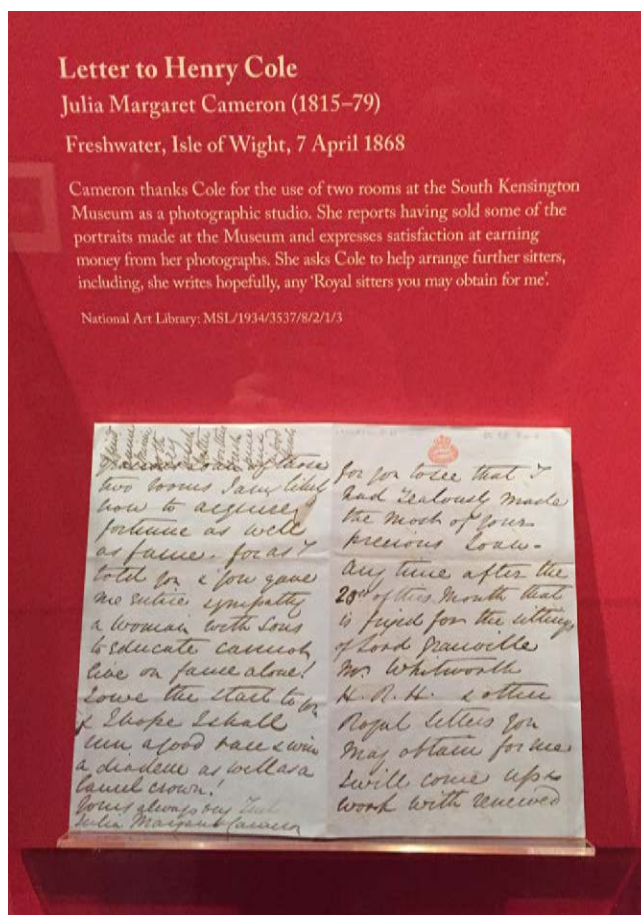 Letter to Henry Cole
Julia Margaret Cameron (1815–79)
Freshwater, Isle of Wight, 7 April 1868
Cameron thanks Cole for the use of two rooms at the South Kensington
Museum as a photographic studio. She reports having sold some of the
portraits made at the Museum and expresses satisfaction at earning
money from her photographs. She asks Cole to help arrange further sitters,
including, she writes hopefully, any ‘Royal sitters you may obtain for me’.
National Art Library: MSL/1934/3537/8/2/1/3
loan of those
two rooms I am likely
now to acquire
fortune as well
as fame. for as I
told you & you gave
me entire sympathy
a woman with sons
to educate cannot
live on fame alone!
I owe the start to you
& I hope I shall
run a good race & win
a diadem as well as a
laurel crown!
Yours always
Julia Margaret Cameron
for you to see that I
had zealously made
the most of your
precious loan.
Any time after the
20th of this month that
is fixed for the sittings
of Lord Granville
Mr. Whitworth
H. R. H. & other
Royal sitters you
may obtain for me
I will come up &
work with renewed